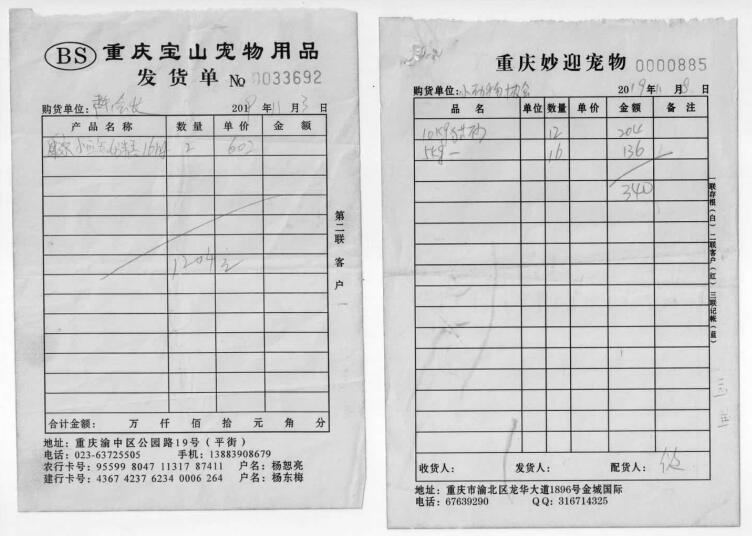 BS 重庆宝山宠物用品
发货单 No 0033692
购货单位: 2019年11月3日
产品名称 数量 单价 金额
2 602
1204元
第二联 客户
合计金额: 万 仟 佰 拾 元 角 分
地址: 重庆渝中区公园路19号 (平街)
电话: 023-63725505 手机: 13883908679
农行卡号: 95599 8047 11317 87411 户名: 杨恕亮
建行卡号: 4367 4237 6234 0006 264 户名: 杨东梅
重庆妙迎宠物 0000885
购货单位: 小动物协会 2019年11月8日
品名 单位 数量 单价 金额 备注
10kg猫砂 12 204
5kg一 16 136
340
一联存根(白) 二联客户(红) 三联记帐(蓝)
收货人: 发货人: 配货人:
地址: 重庆市渝北区龙华大道1896号金城国际
电话: 67639290 QQ: 316714325